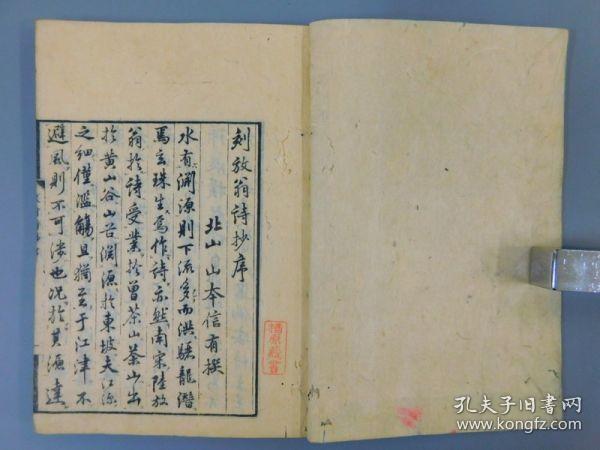 刻放翁詩抄序
北山山本信有撰
水有淵源則下流多而洪驪龍潛
馬玄珠生焉作詩亦然南宋陸放
翁於詩受業於曾茶山茶山出
於黃山谷山谷淵源於東坡夫江源
之細僅濫觴且獨至于江津不
避風則不可涉也況於其源達
藏書
孔夫子旧书网
www.kongfz.com